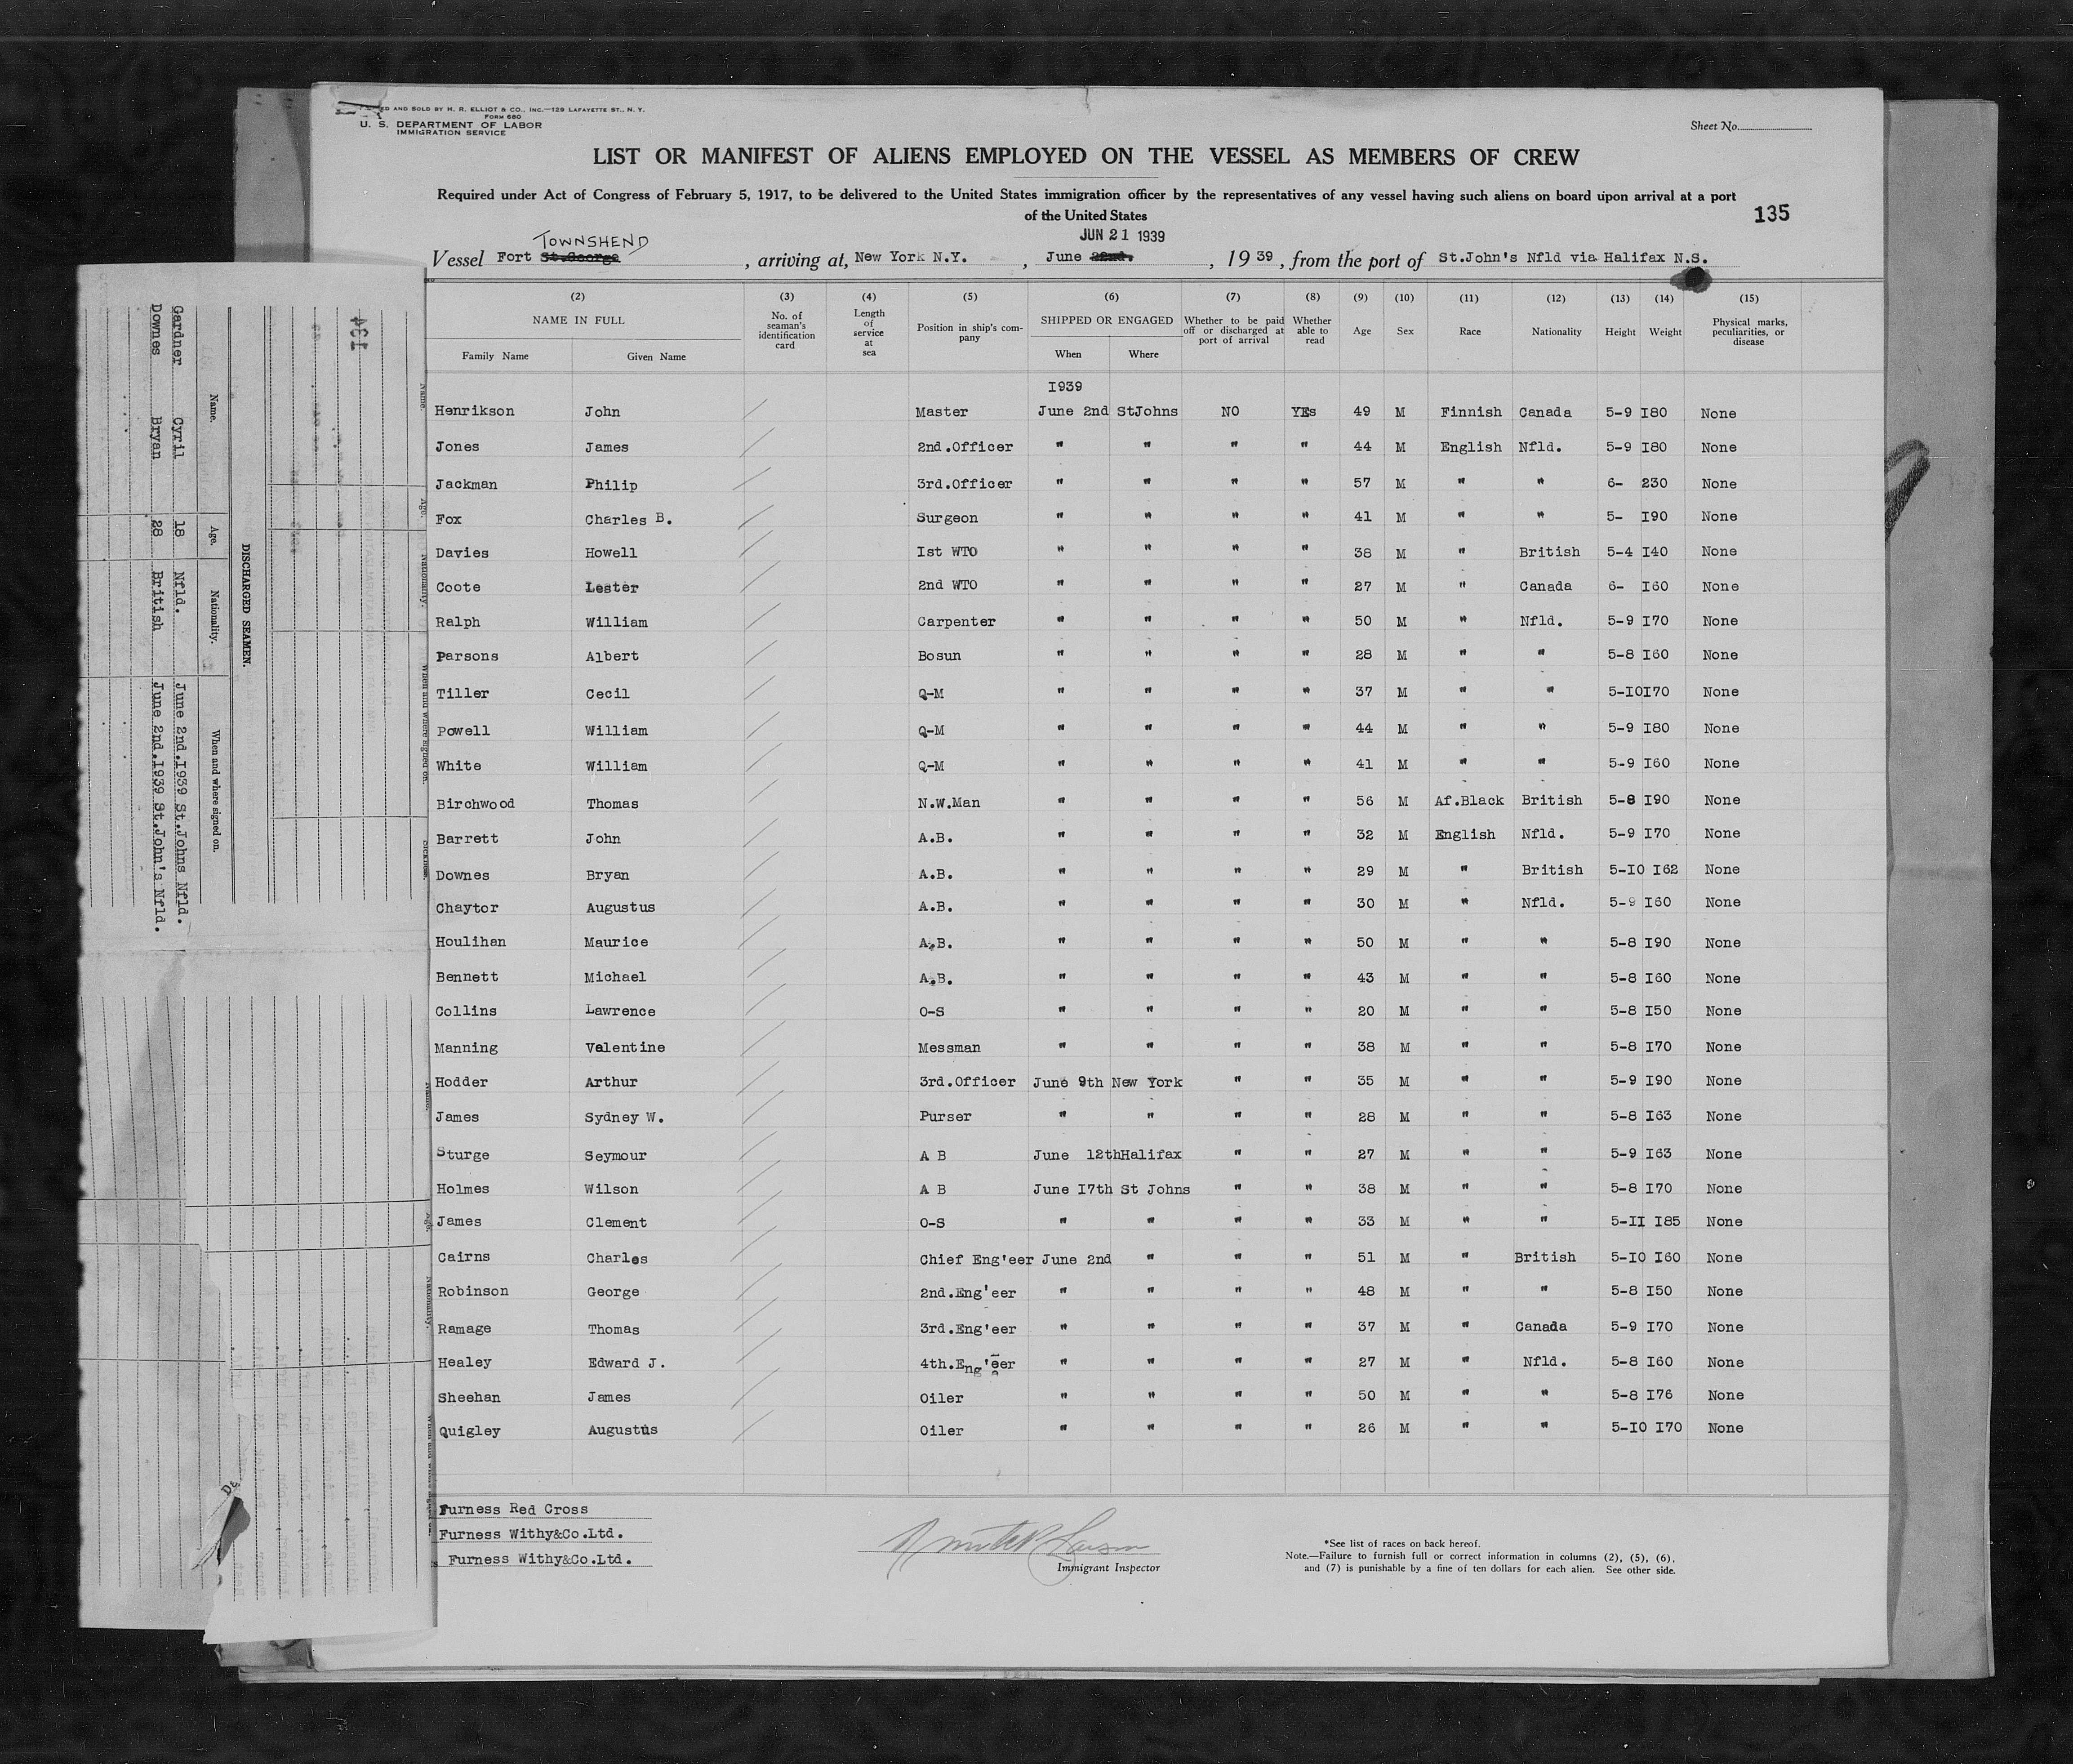 ED AND SOLD BY H. R. ELLIOT & CO., INC.—129 LAFAYETTE ST., N. Y.
FORM 680
U. S. DEPARTMENT OF LABOR
IMMIGRATION SERVICE
Sheet No.
LIST OR MANIFEST OF ALIENS EMPLOYED ON THE VESSEL AS MEMBERS OF CREW
Required under Act of Congress of February 5, 1917, to be delivered to the United States immigration officer by the representatives of any vessel having such aliens on board upon arrival at a port
of the United States
135
TOWNSHEND
JUN 21 1939
Vessel Fort St.George, arriving at, New York N.Y., June 22nd., 1939, from the port of St.John's Nfld via Halifax N.S.
(2) (3) (4) (5) (6) (7) (8) (9) (10) (11) (12) (13) (14) (15)
NAME IN FULL No. of seaman's identification card Length of service at sea Position in ship's company SHIPPED OR ENGAGED Whether to be paid off or discharged at port of arrival Whether able to read Age Sex Race Nationality Height Weight Physical marks, peculiarities, or disease
Family Name Given Name When Where
I939
Henrikson John Master June 2nd StJohns NO YEs 49 M Finnish Canada 5-9 I80 None
Jones James 2nd.Officer " " " " 44 M English Nfld. 5-9 I80 None
Jackman Philip 3rd.Officer " " " " 57 M " " 6- 230 None
Fox Charles B. Surgeon " " " " 41 M " " 5- I90 None
Davies Howell Ist WTO " " " " 38 M " British 5-4 I40 None
Coote Lester 2nd WTO " " " " 27 M " Canada 6- I60 None
Ralph William Carpenter " " " " 50 M " Nfld. 5-9 I70 None
Parsons Albert Bosun " " " " 28 M " " 5-8 I60 None
Tiller Cecil Q-M " " " " 37 M " " 5-IO I70 None
Powell William Q-M " " " " 44 M " " 5-9 I80 None
White William Q-M " " " " 41 M " " 5-9 I60 None
Birchwood Thomas N.W.Man " " " " 56 M Af.Black British 5-8 I90 None
Barrett John A.B. " " " " 32 M English Nfld. 5-9 I70 None
Downes Bryan A.B. " " " " 29 M " British 5-IO I62 None
Chaytor Augustus A.B. " " " " 30 M " Nfld. 5-9 I60 None
Houlihan Maurice A.B. " " " " 50 M " " 5-8 I90 None
Bennett Michael A.B. " " " " 43 M " " 5-8 I60 None
Collins Lawrence O-S " " " " 20 M " " 5-8 I50 None
Manning Valentine Messman " " " " 38 M " " 5-8 I70 None
Hodder Arthur 3rd.Officer June 9th New York " " 35 M " " 5-9 I90 None
James Sydney W. Purser " " " " 28 M " " 5-8 I63 None
Sturge Seymour A B June 12th Halifax " " 27 M " " 5-9 I63 None
Holmes Wilson A B June I7th St Johns " " 38 M " " 5-8 I70 None
James Clement O-S " " " " 33 M " " 5-II I85 None
Cairns Charles Chief Eng'eer June 2nd " " " 51 M " British 5-IO I60 None
Robinson George 2nd.Eng'eer " " " " 48 M " " 5-8 I50 None
Ramage Thomas 3rd.Eng'eer " " " " 37 M " Canada 5-9 I70 None
Healey Edward J. 4th.Eng'eer " " " " 27 M " Nfld. 5-8 I60 None
Sheehan James Oiler " " " " 50 M " " 5-8 I76 None
Quigley Augustus Oiler " " " " 26 M " " 5-IO I70 None
Furness Red Cross
Furness Withy&Co.Ltd.
Furness Withy&Co.Ltd.
Immigrant Inspector
*See list of races on back hereof.
Note.—Failure to furnish full or correct information in columns (2), (5), (6),
and (7) is punishable by a fine of ten dollars for each alien. See other side.
134
DISCHARGED SEAMEN.
Name. Age. Nationality. When and where signed on.
Gardner Cyril 18 Nfld. June 2nd.I939 St.Johns Nfld.
Downes Bryan 28 British June 2nd.I939 St.John's Nfld.